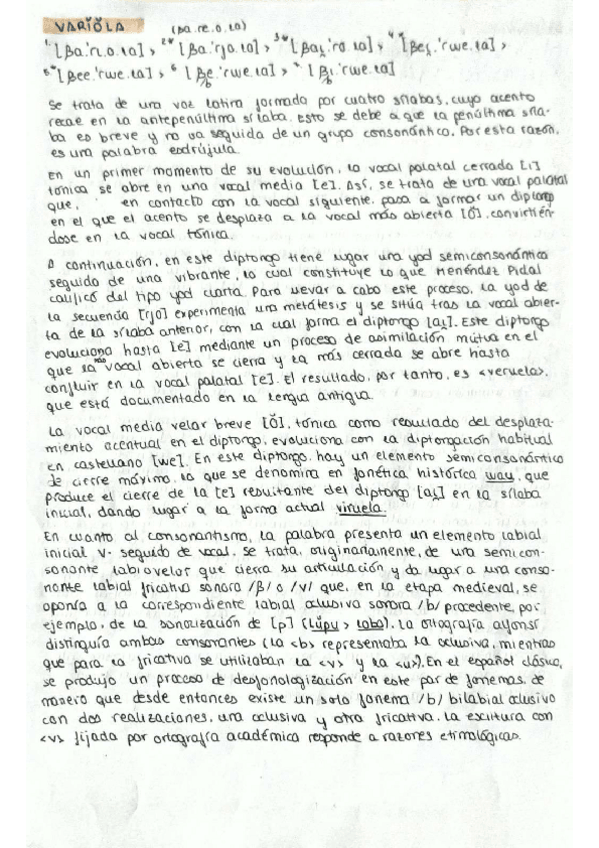 VARIŎLA (βa.re.o.la)
1 [βa.'ri.o.la] > 2* [βa.'rjo.la] > 3* [βai̯.'ro.la] > 4* [βei̯.'rwe.la] >
5* [βee.'rwe.la] > 6 [βe.'rwe.la] > 7 [βi.'rwe.la]
b b
Se trata de una voz latina formada por cuatro sílabas, cuyo acento
recae en la antepenúltima sílaba. Esto se debe a que la penúltima síla-
ba es breve y no va seguida de un grupo consonántico. Por esta razón,
es una palabra esdrújula.
En un primer momento de su evolución, la vocal palatal cerrada [i]
tónica se abre en una vocal media [e]. Así, se trata de una vocal palatal
que, en contacto con la vocal siguiente, pasa a formar un diptongo
en el que el acento se desplaza a la vocal más abierta [ŏ], convirtién-
dose en la vocal tónica.
A continuación, en este diptongo tiene lugar una yod semiconsonántica
seguido de una vibrante, lo cual constituye lo que Menéndez Pidal
calificó del tipo yod cuarta. Para llevar a cabo este proceso, la yod de
la secuencia [rjo] experimenta una metátesis y se sitúa tras la vocal abier-
ta de la sílaba anterior, con la cual forma el diptongo [ai̯]. Este diptongo
evoluciona hasta [e] mediante un proceso de asimilación mútua en el
que la más vocal abierta se cierra y la más cerrada se abre hasta
confluir en la vocal palatal [e]. El resultado, por tanto, es <veruela>,
que está documentado en la lengua antigua.
La vocal media velar breve [ŏ], tónica como resultado del desplaza-
miento acentual en el diptongo, evoluciona con la diptongación habitual
en castellano [we]. En este diptongo, hay un elemento semiconsonántico
de cierre máximo, lo que se denomina en fonética histórica wau, que
produce el cierre de la [e] resultante del diptongo [ai̯] en la sílaba
inicial, dando lugar a la forma actual viruela.
En cuanto al consonantismo, la palabra presenta un elemento labial
inicial v- seguido de vocal. Se trata, originariamente, de una semicon-
sonante labiovelar que cierra su articulación y da lugar a una conso-
nante labial fricativa sonora /β/ o /v/ que, en la etapa medieval, se
oponía a la correspondiente labial oclusiva sonora /b/ procedente, por
ejemplo, de la sonorización de [p] (Lŭpu > lobo). La ortografía alfonsí
distinguía ambas consonantes (la <b> representaba la oclusiva, mientras
que para la fricativa se utilizaban la <v> y la <u>). En el español clásico,
se produjo un proceso de desfonologización en este par de fonemas, de
manera que desde entonces existe un solo fonema /b/ bilabial oclusivo
con dos realizaciones, una oclusiva y otra fricativa. La escritura con
<v> fijada por ortografía académica responde a razones etimológicas.